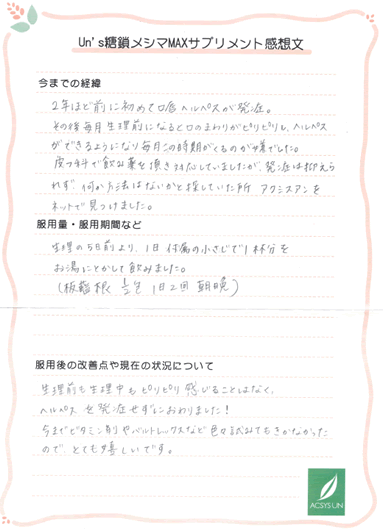 Un's糖鎖メシマMAXサプリメント感想文
今までの経緯
2年ほど前に初めて口唇ヘルペスが発症。
その後毎月生理前になると口のまわりがピリピリし、ヘルペス
ができるようになり毎月この時期がくるのが嫌でした。
皮フ科で飲み薬を頂き対応していましたが、発症は抑えら
れず、何か方法はないかと探していた所、アクシスアンを
ネットで見つけました。
服用量・服用期間など
生理の5日前より、1日 付属の小さじで1杯分を
お湯にとかして飲みました。
(板藍根 1/2包 1日2回 朝晩)
服用後の改善点や現在の状況について
生理前も生理中もピリピリ感じることはなく、
ヘルペスを発症せずにおわりました!
今までビタミン剤やバルトレックスなど色々試みてもきかなかった
ので、とても嬉しいです。
ACSYS UN